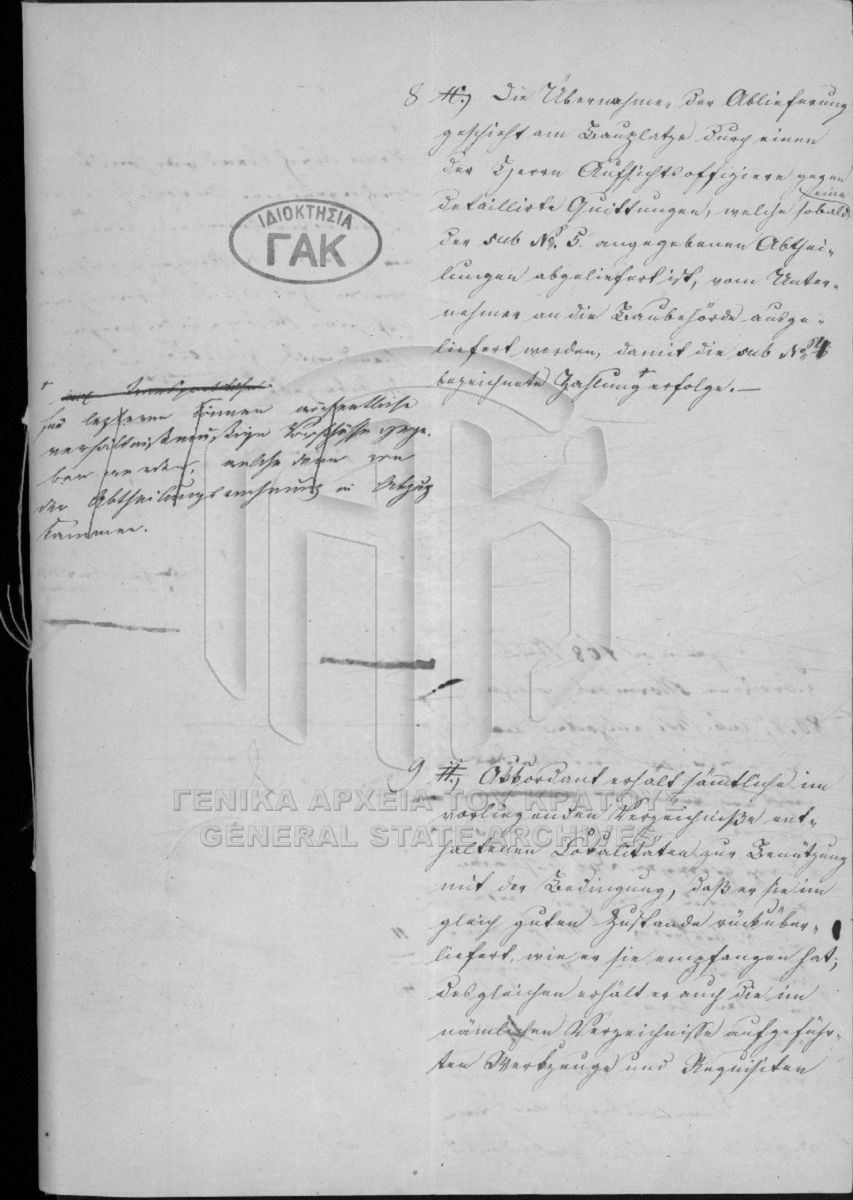 8 H.) Die Übernahme der Ablieferung
geschieht am Bauplatze durch einen
der Herrn Aufsichtsoffiziere gegen
detaillirte Quittungen, welche sobald eine
der sub No. 5. angegebenen Abthei-
lungen abgeliefert ist, vom Unter-
nehmer an die Baubehörde ausge-
liefert werden, damit die sub No. 4
bezeichnete Zahlung + erfolge. —
ΙΔΙΟΚΤΗΣΙΑ
ΓΑΚ
+
für letztere können wöchentliche
verhältnißmäßige Vorschüsse gege-
ben werden, welche dann von
der Abtheilungsrechnung in Abzug
kommen.
9 Akkordant erhält sämtliche im
vorliegenden Verzeichniße ent-
haltenen Lokalitäten zur Benützung
mit der Bedingung, daß er sie im
gleich guten Zustande rücküber-
liefert, wie er sie empfangen hat;
desgleichen erhält er auch die im
nämlichen Verzeichnisse aufgeführ-
ten Werkzeuge und Requisiten
ΓΕΝΙΚΑ ΑΡΧΕΙΑ ΤΟΥ ΚΡΑΤΟΥΣ
GENERAL STATE ARCHIVES